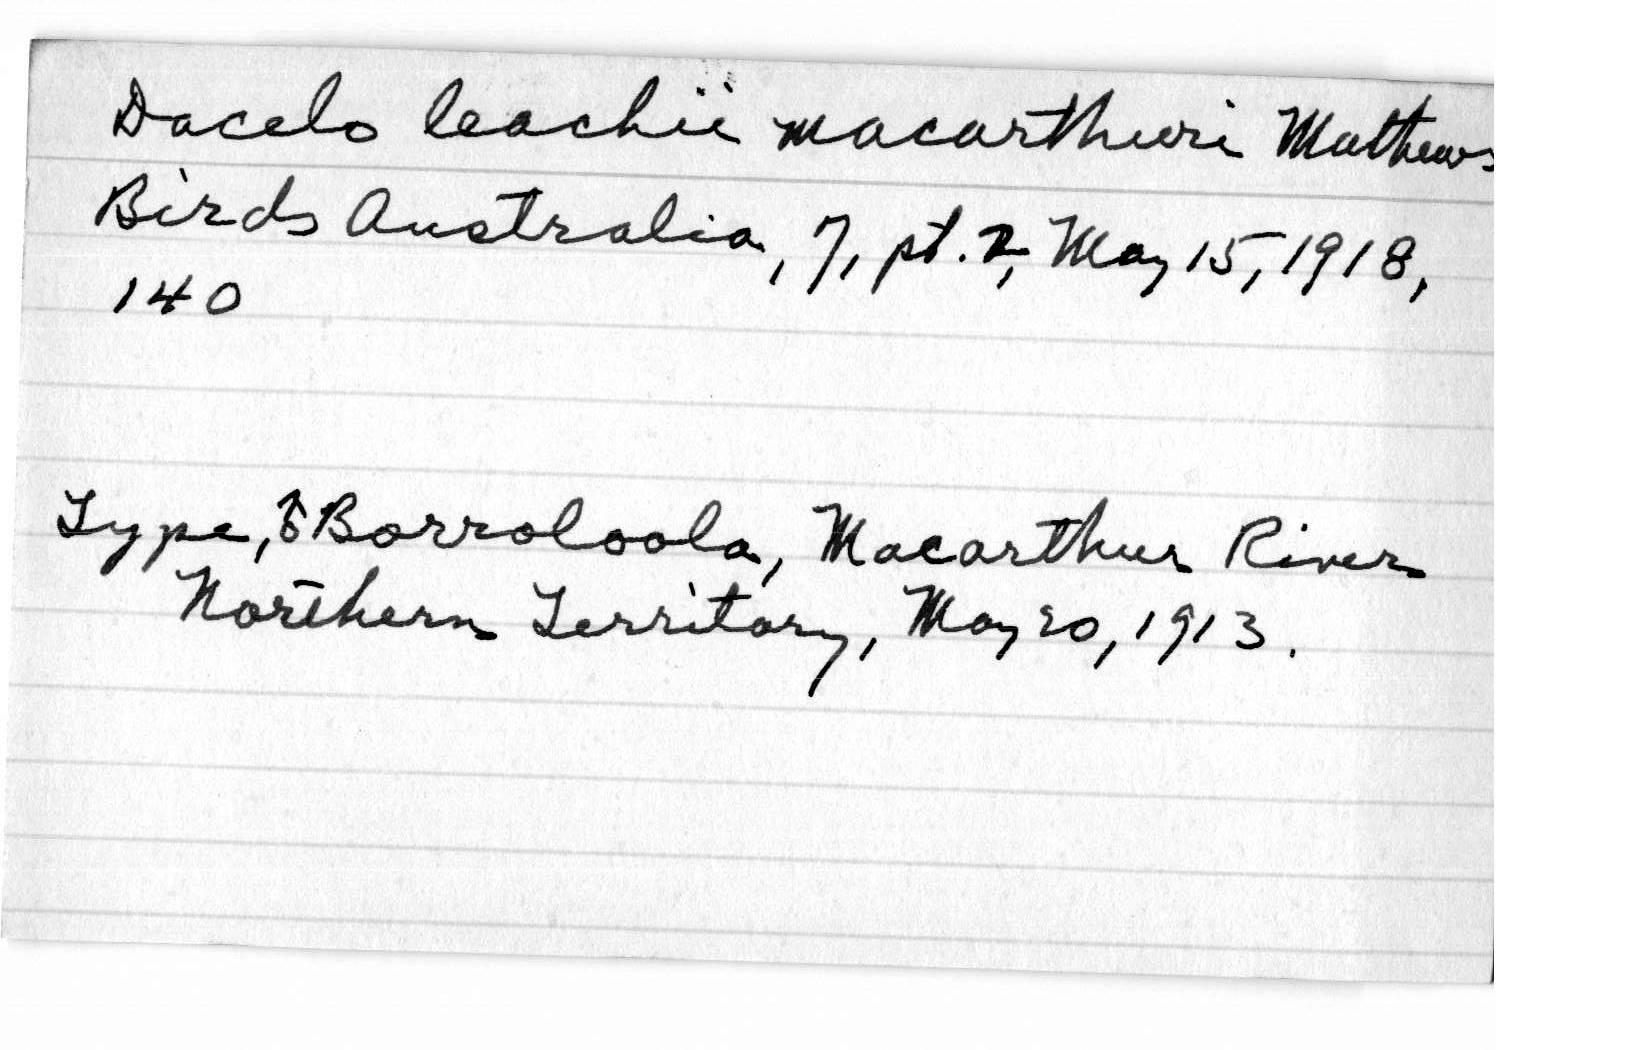 Dacelo leachii macarthuri Mathews
Birds Australia, 7, pt. 2, May 15, 1918,
140
Type, ♂ Borroloola, Macarthur River
Northern Territory, May 20, 1913.